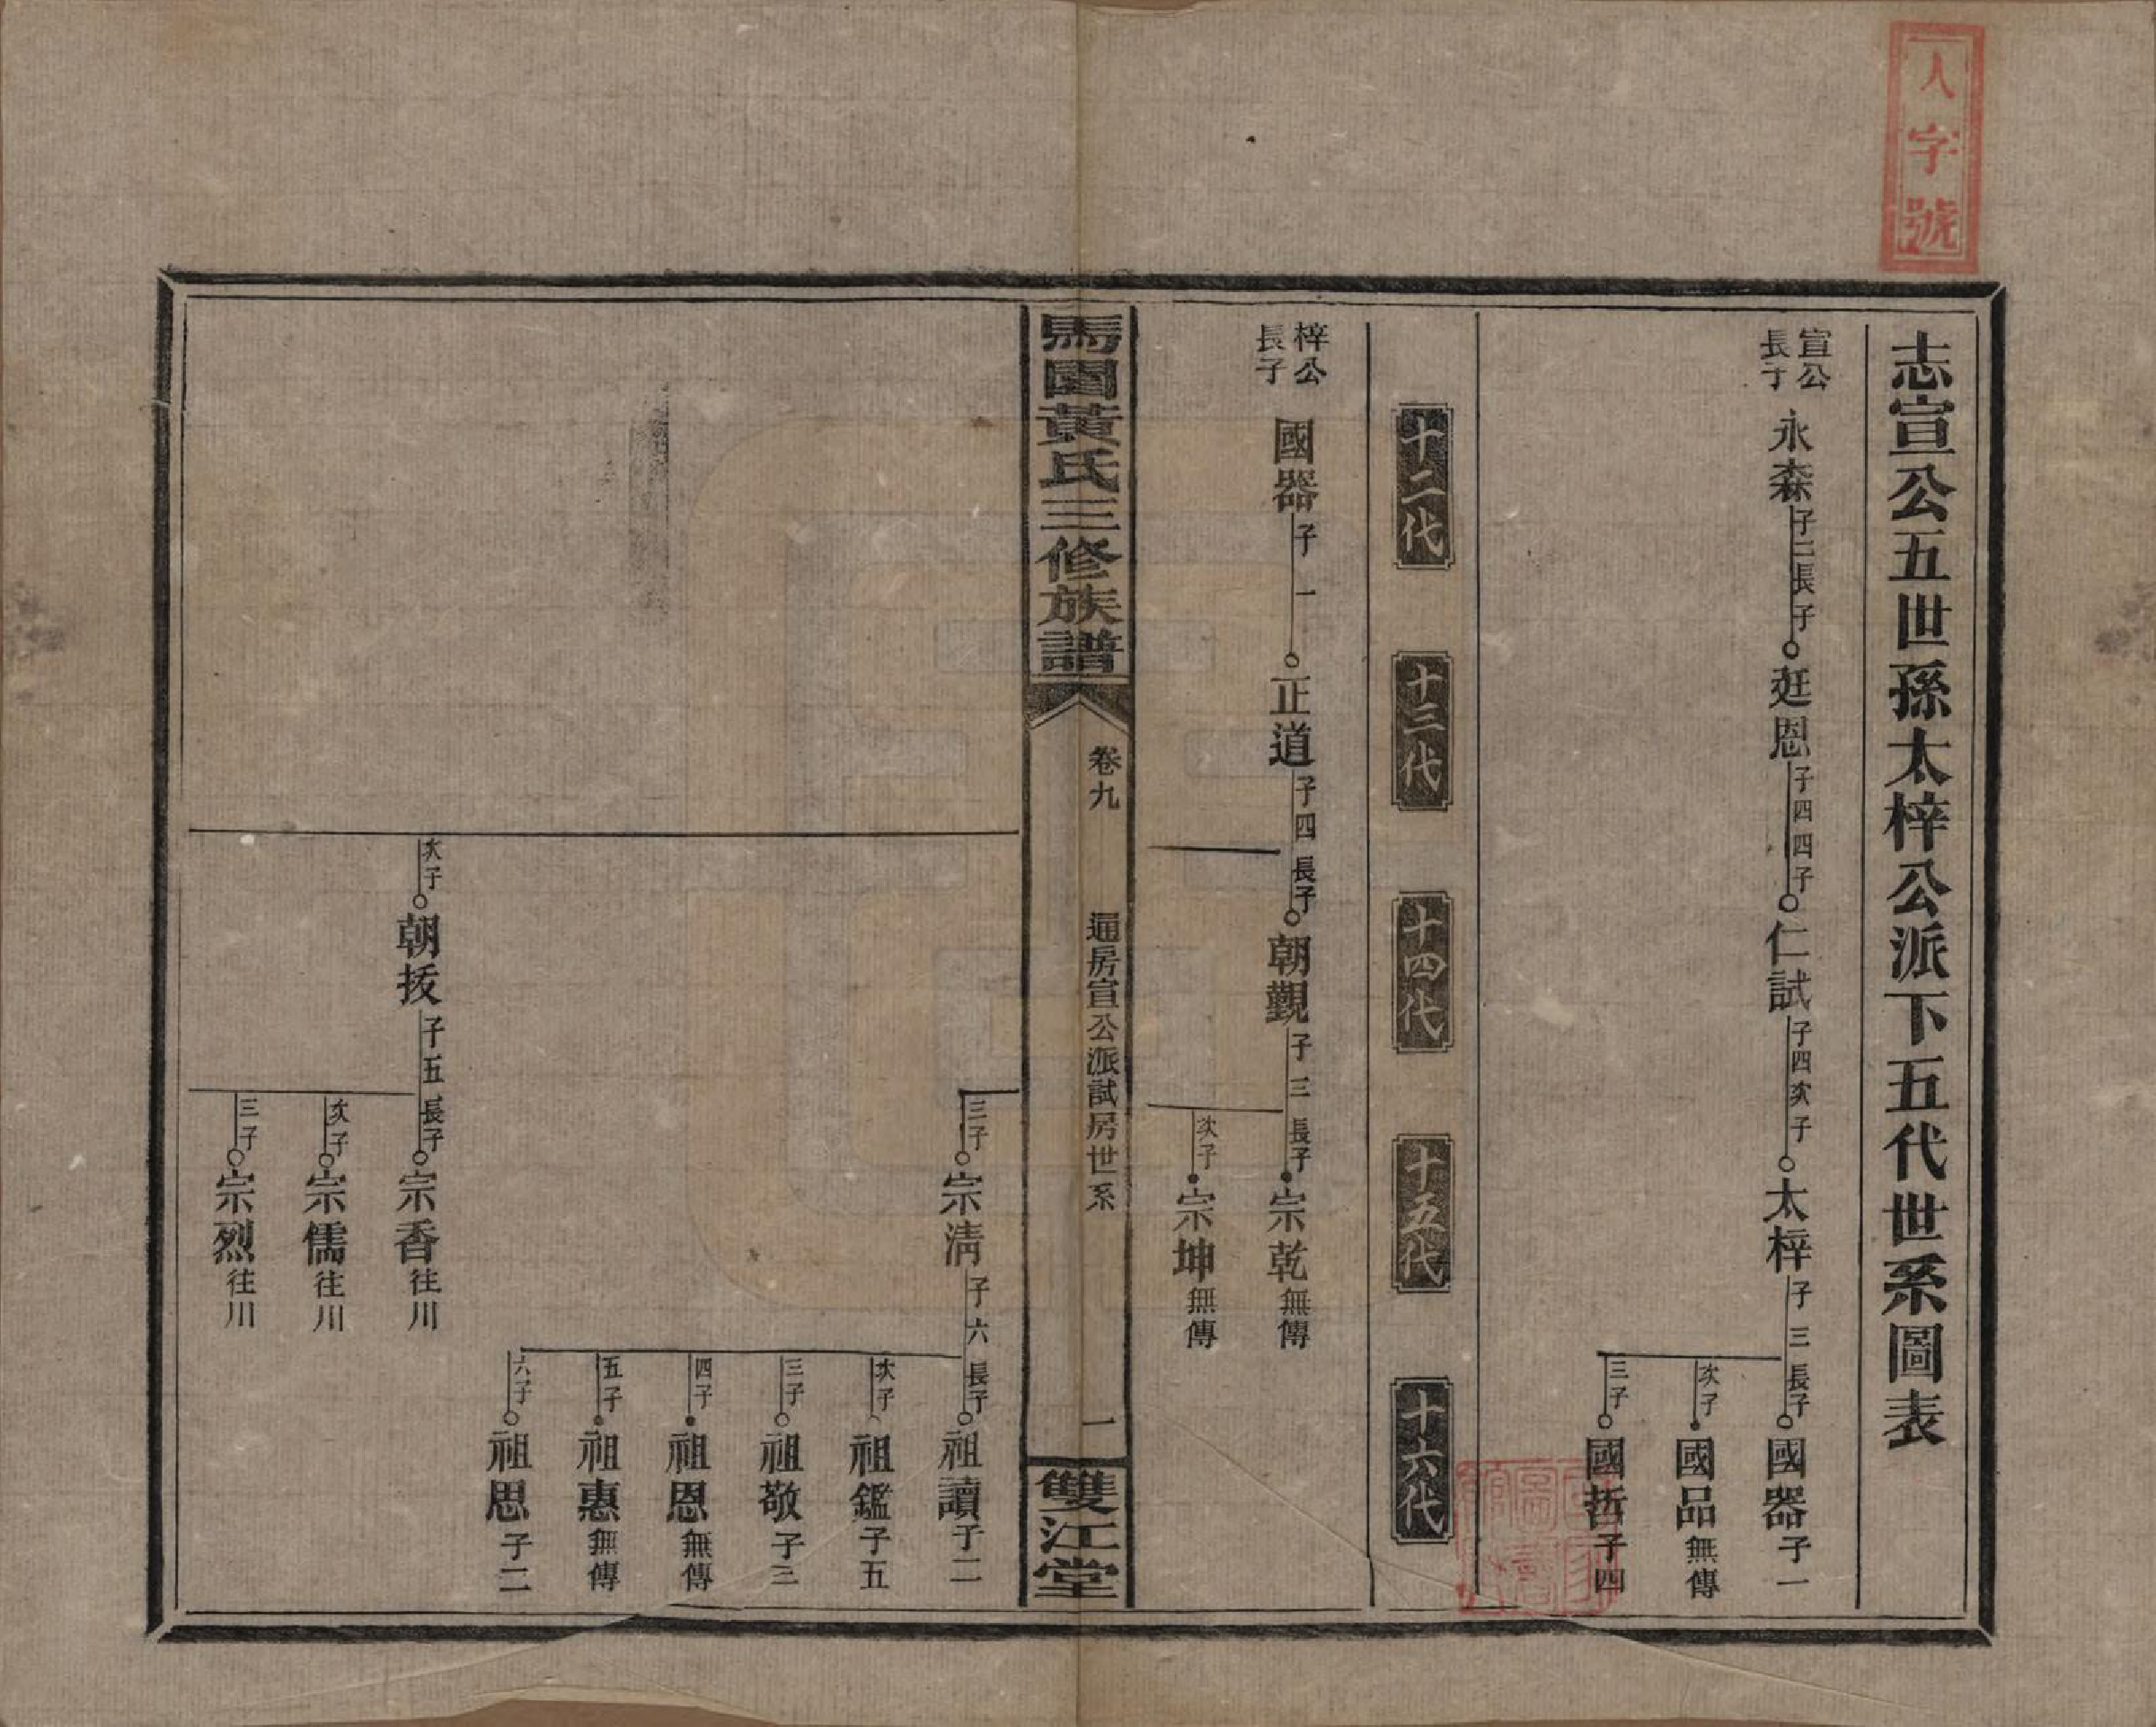 人字號
志宣公五世孫太梓公派下五代世系圖表
宣公長子 永森 子二長子 廷恩 子四四子 仁試 子四次子 太梓 子三長子 國器 子一
次子 國品 無傳
三子 國哲 子四
十二代 十三代 十四代 十五代 十六代
梓公長子 國器 子一 正道 子四長子 朝觀 子三長子 宗乾 無傳
次子 宗坤 無傳
馬園黃氏三修族譜 卷九 逥房宣公派試房世系 一 雙江堂
三子 宗淸 子六長子 祖讀 子二
次子 祖鑑 子五
三子 祖敬 子三
四子 祖恩 無傳
五子 祖惠 無傳
六子 祖思 子二
次子 朝拔 子五長子 宗香 往川
次子 宗儒 往川
三子 宗烈 往川